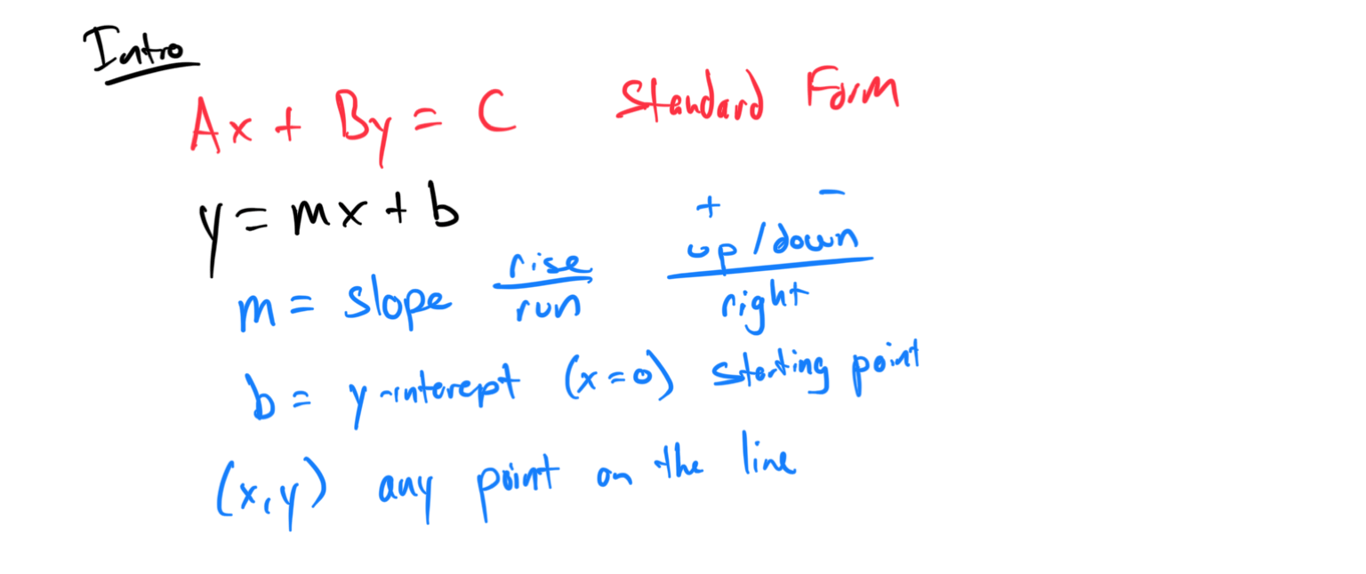 Intro
Ax + By = C Standard Form
y = mx + b
+ −
m = slope rise/run up/down/right
b = y-interept (x=0) starting point
(x,y) any point on the line